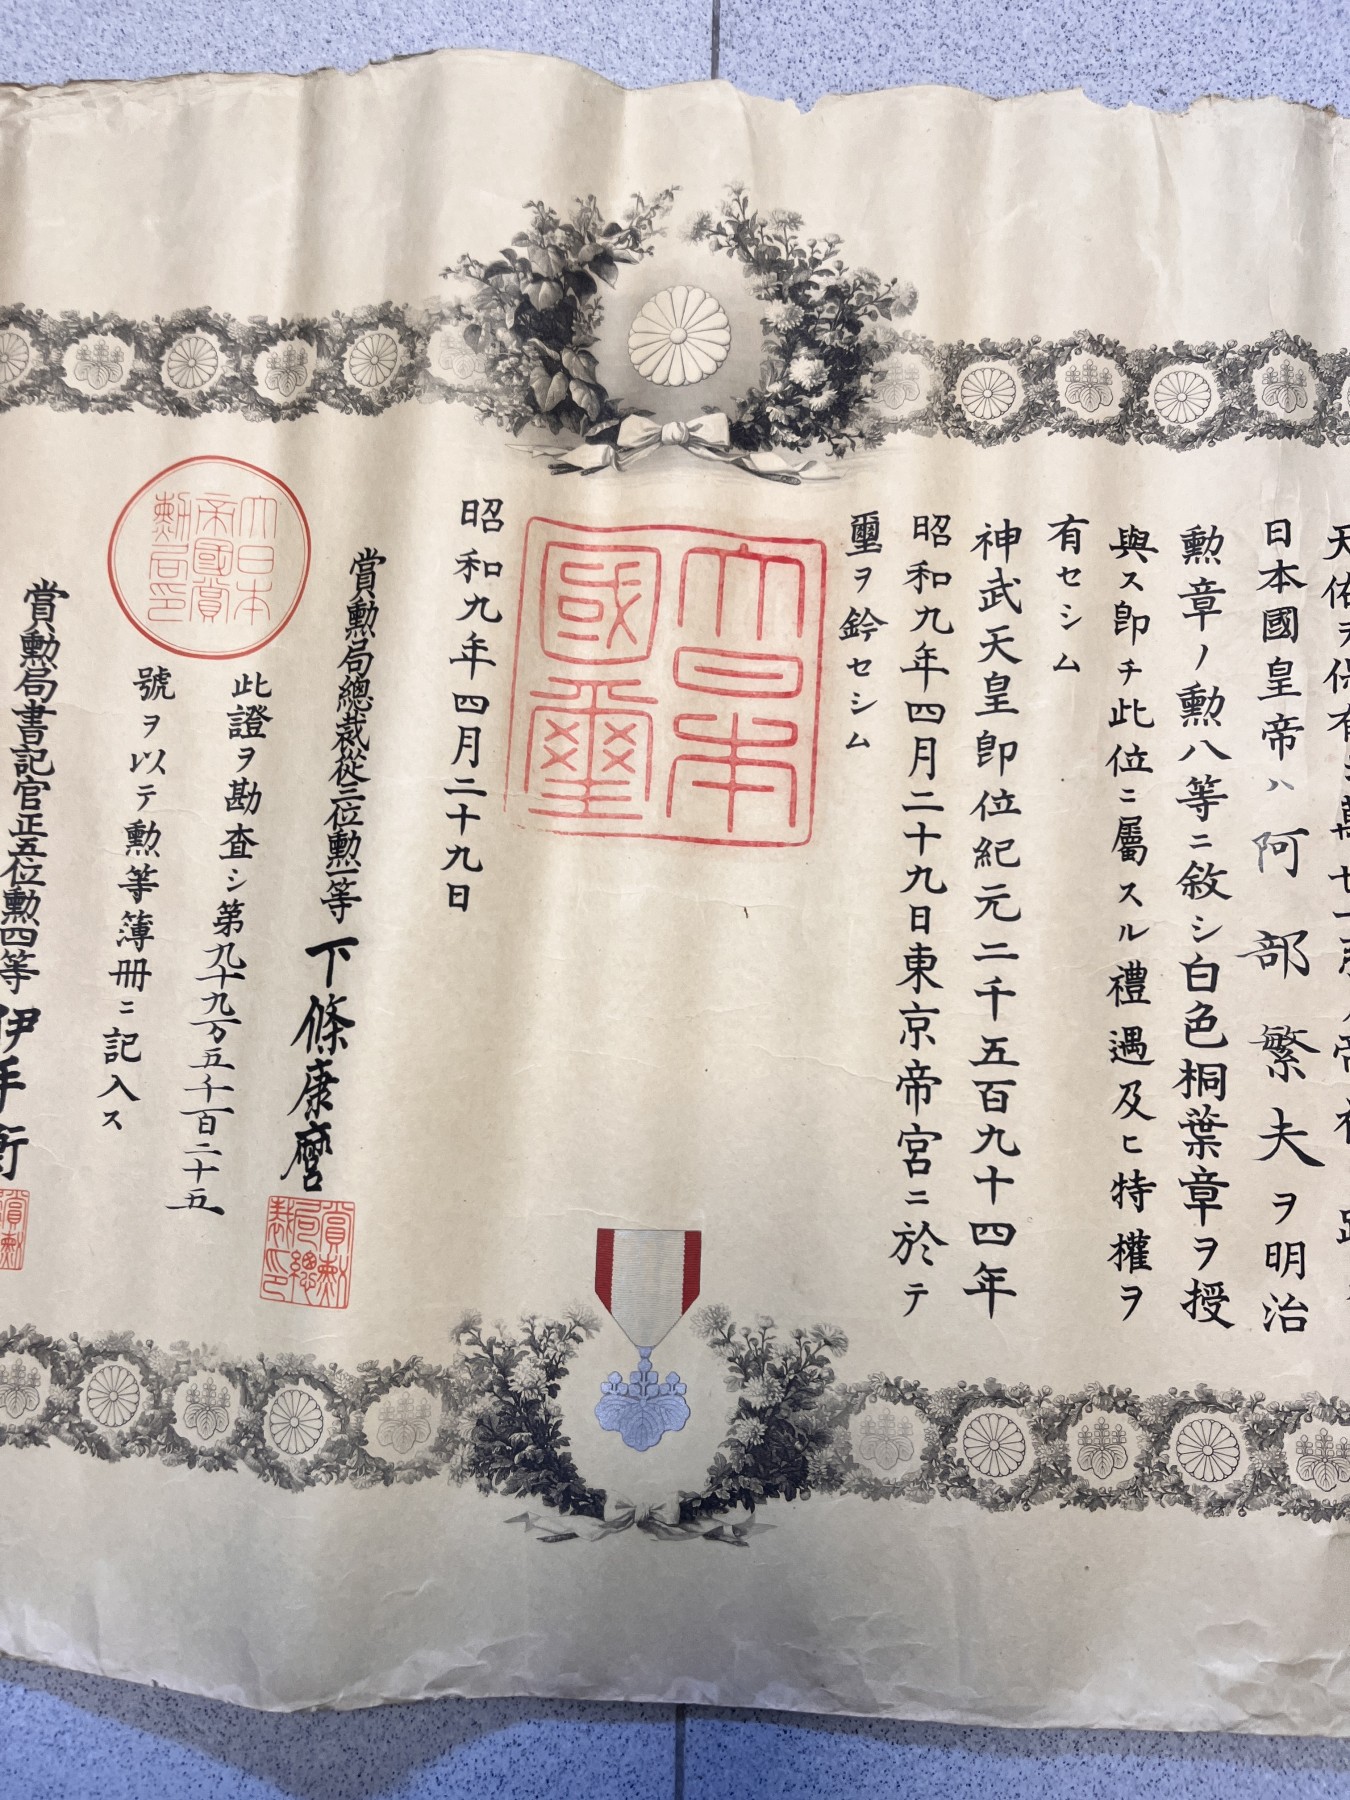 天佑ヲ保有シ萬世一系ノ帝祚ヲ
日本國皇帝ハ阿部繁夫ヲ明治
勲章ノ勲八等ニ敘シ白色桐葉章ヲ授
與ス卽チ此位ニ屬スル禮遇及ヒ特權ヲ
有セシム
神武天皇卽位紀元二千五百九十四年
昭和九年四月二十九日東京帝宮ニ於テ
璽ヲ鈐セシム
大日本
國璽
昭和九年四月二十九日
賞勲局總裁從三位勲一等下條康麿
賞勲
局總
裁印
大日本
帝國賞
勲局印
此證ヲ勘査シ第九十九万五千百二十五
號ヲ以テ勲等簿冊ニ記入ス
賞勲局書記官正五位勲四等伊手衛
賞勲